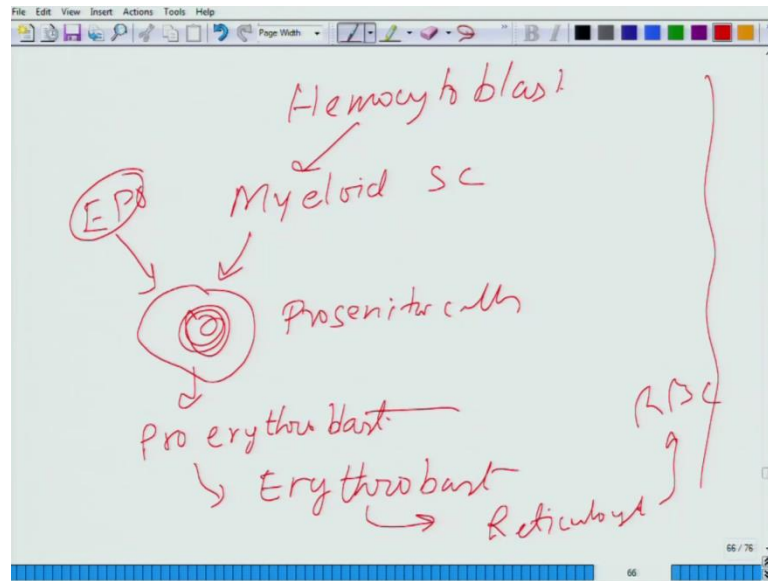 File Edit View Insert Actions Tools Help
Page Width
B I
Hemocytoblast
Myeloid SC
EPO
Prosenitor cells
Pro erythroblast
Erythrobast
RBC
Reticulocyt
66 / 76
66